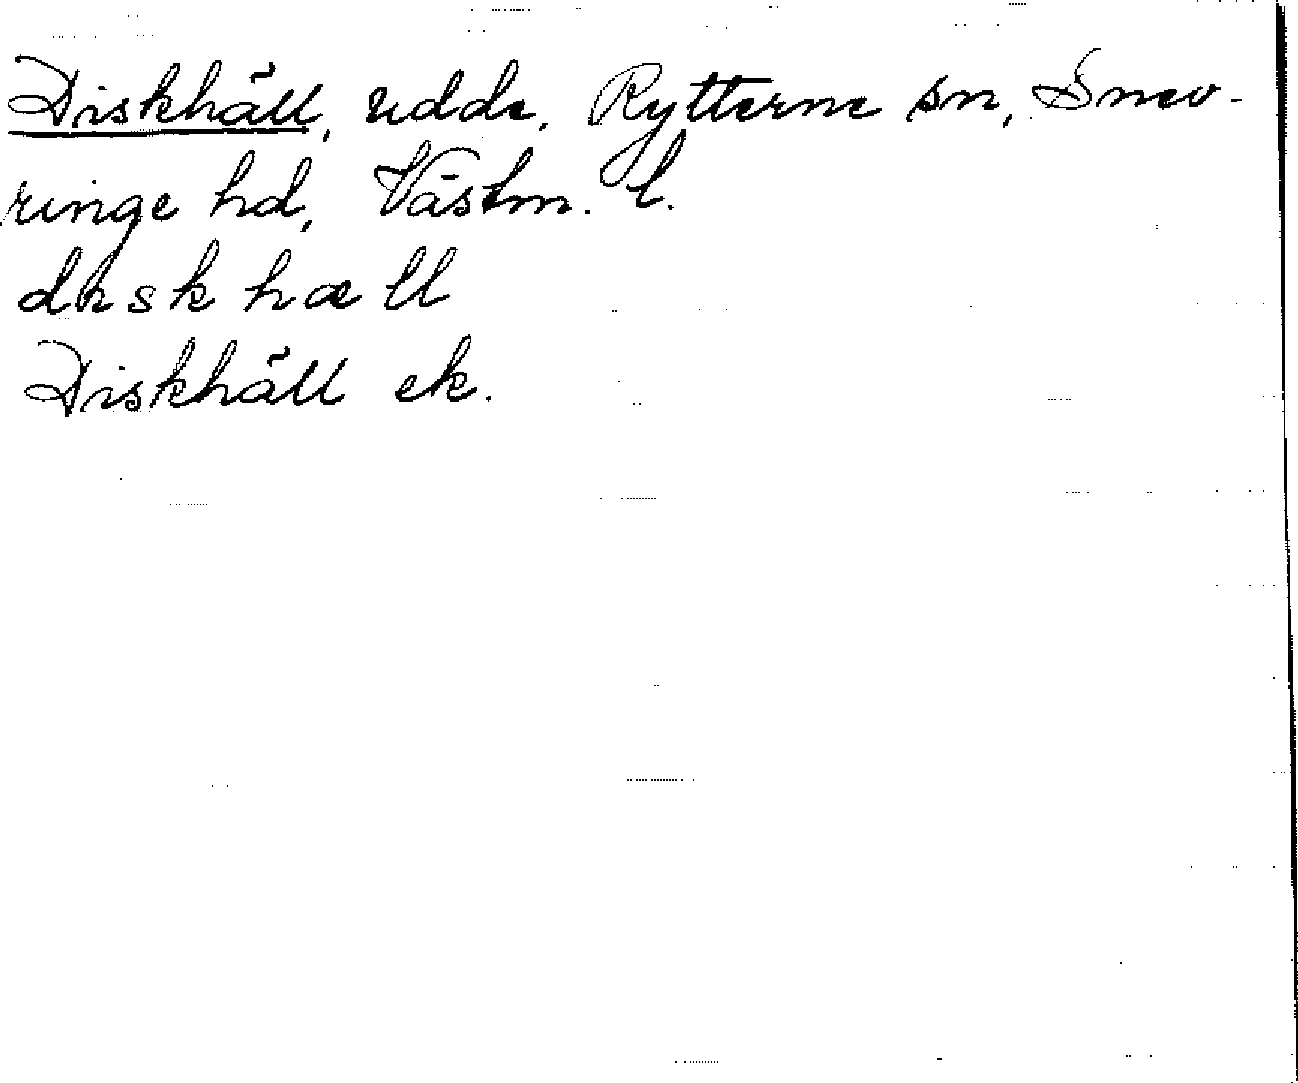 Diskhäll, udde, Rytterne sn, Snev-
ringe hd, Västm. l.
hæll
Diskhäll ek.